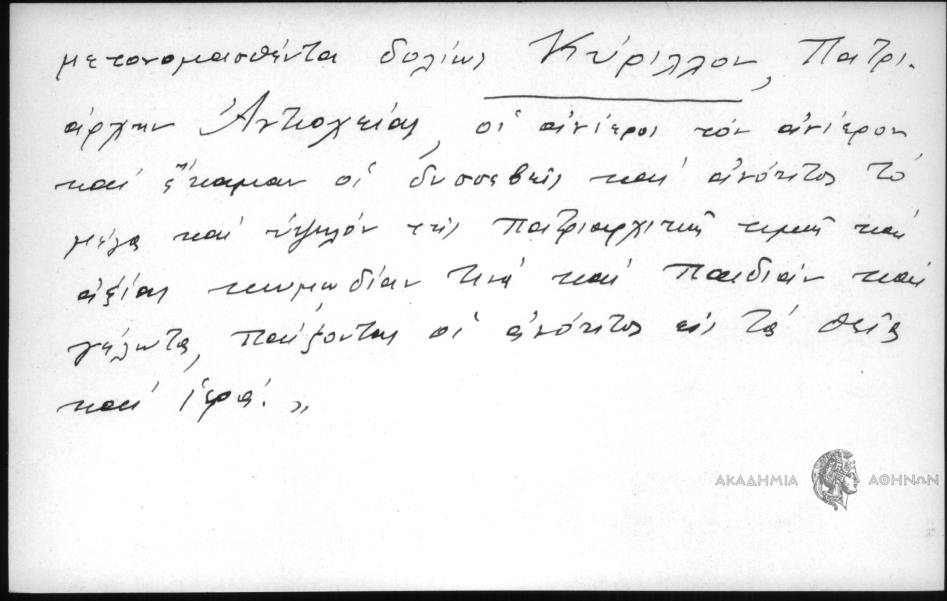 μετονομασθέντα δολίως Κύριλλον, Πατρι-
άρχην Ἀντιοχείας, οἱ ἀνίεροι τὸν ἀνίερον
καὶ ἔκαμαν οἱ δυσσεβεῖς καὶ ἀνόητοι τὸ
μέγα καὶ ὑψηλόν τῆς πατριαρχικῆς τιμῆς καὶ
ἀξίας κωμωδίαν τινά καὶ παιδιάν καὶ
γέλωτα, παίζοντας οἱ ἀνόητοι εἰς τά θεῖα
καί ἱερά.»
ΑΚΑΔΗΜΙΑ ΑΘΗΝΩΝ